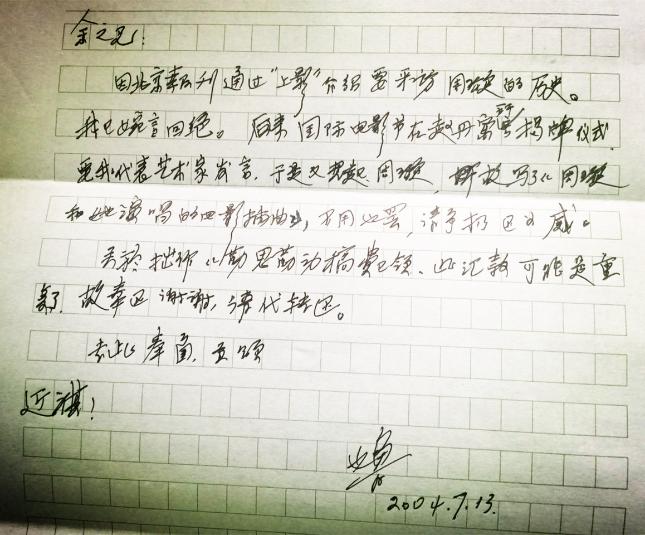 余之兄：
因北京某刊通过“上影”介绍要采访周璇的历史。
我已婉言回绝。后来国际电影节在赵丹寓所揭牌仪式
要我代表艺术家发言，于是又提起周璇，
和她演唱的电影插曲》，不用也罢，请予掷还为感。
关于拙作《勤思勤动》稿费已领、此汇款可能是重
复了，故奉还谢谢，请代转还。
专此奉函，并颂
近祺！
2004.7.13.